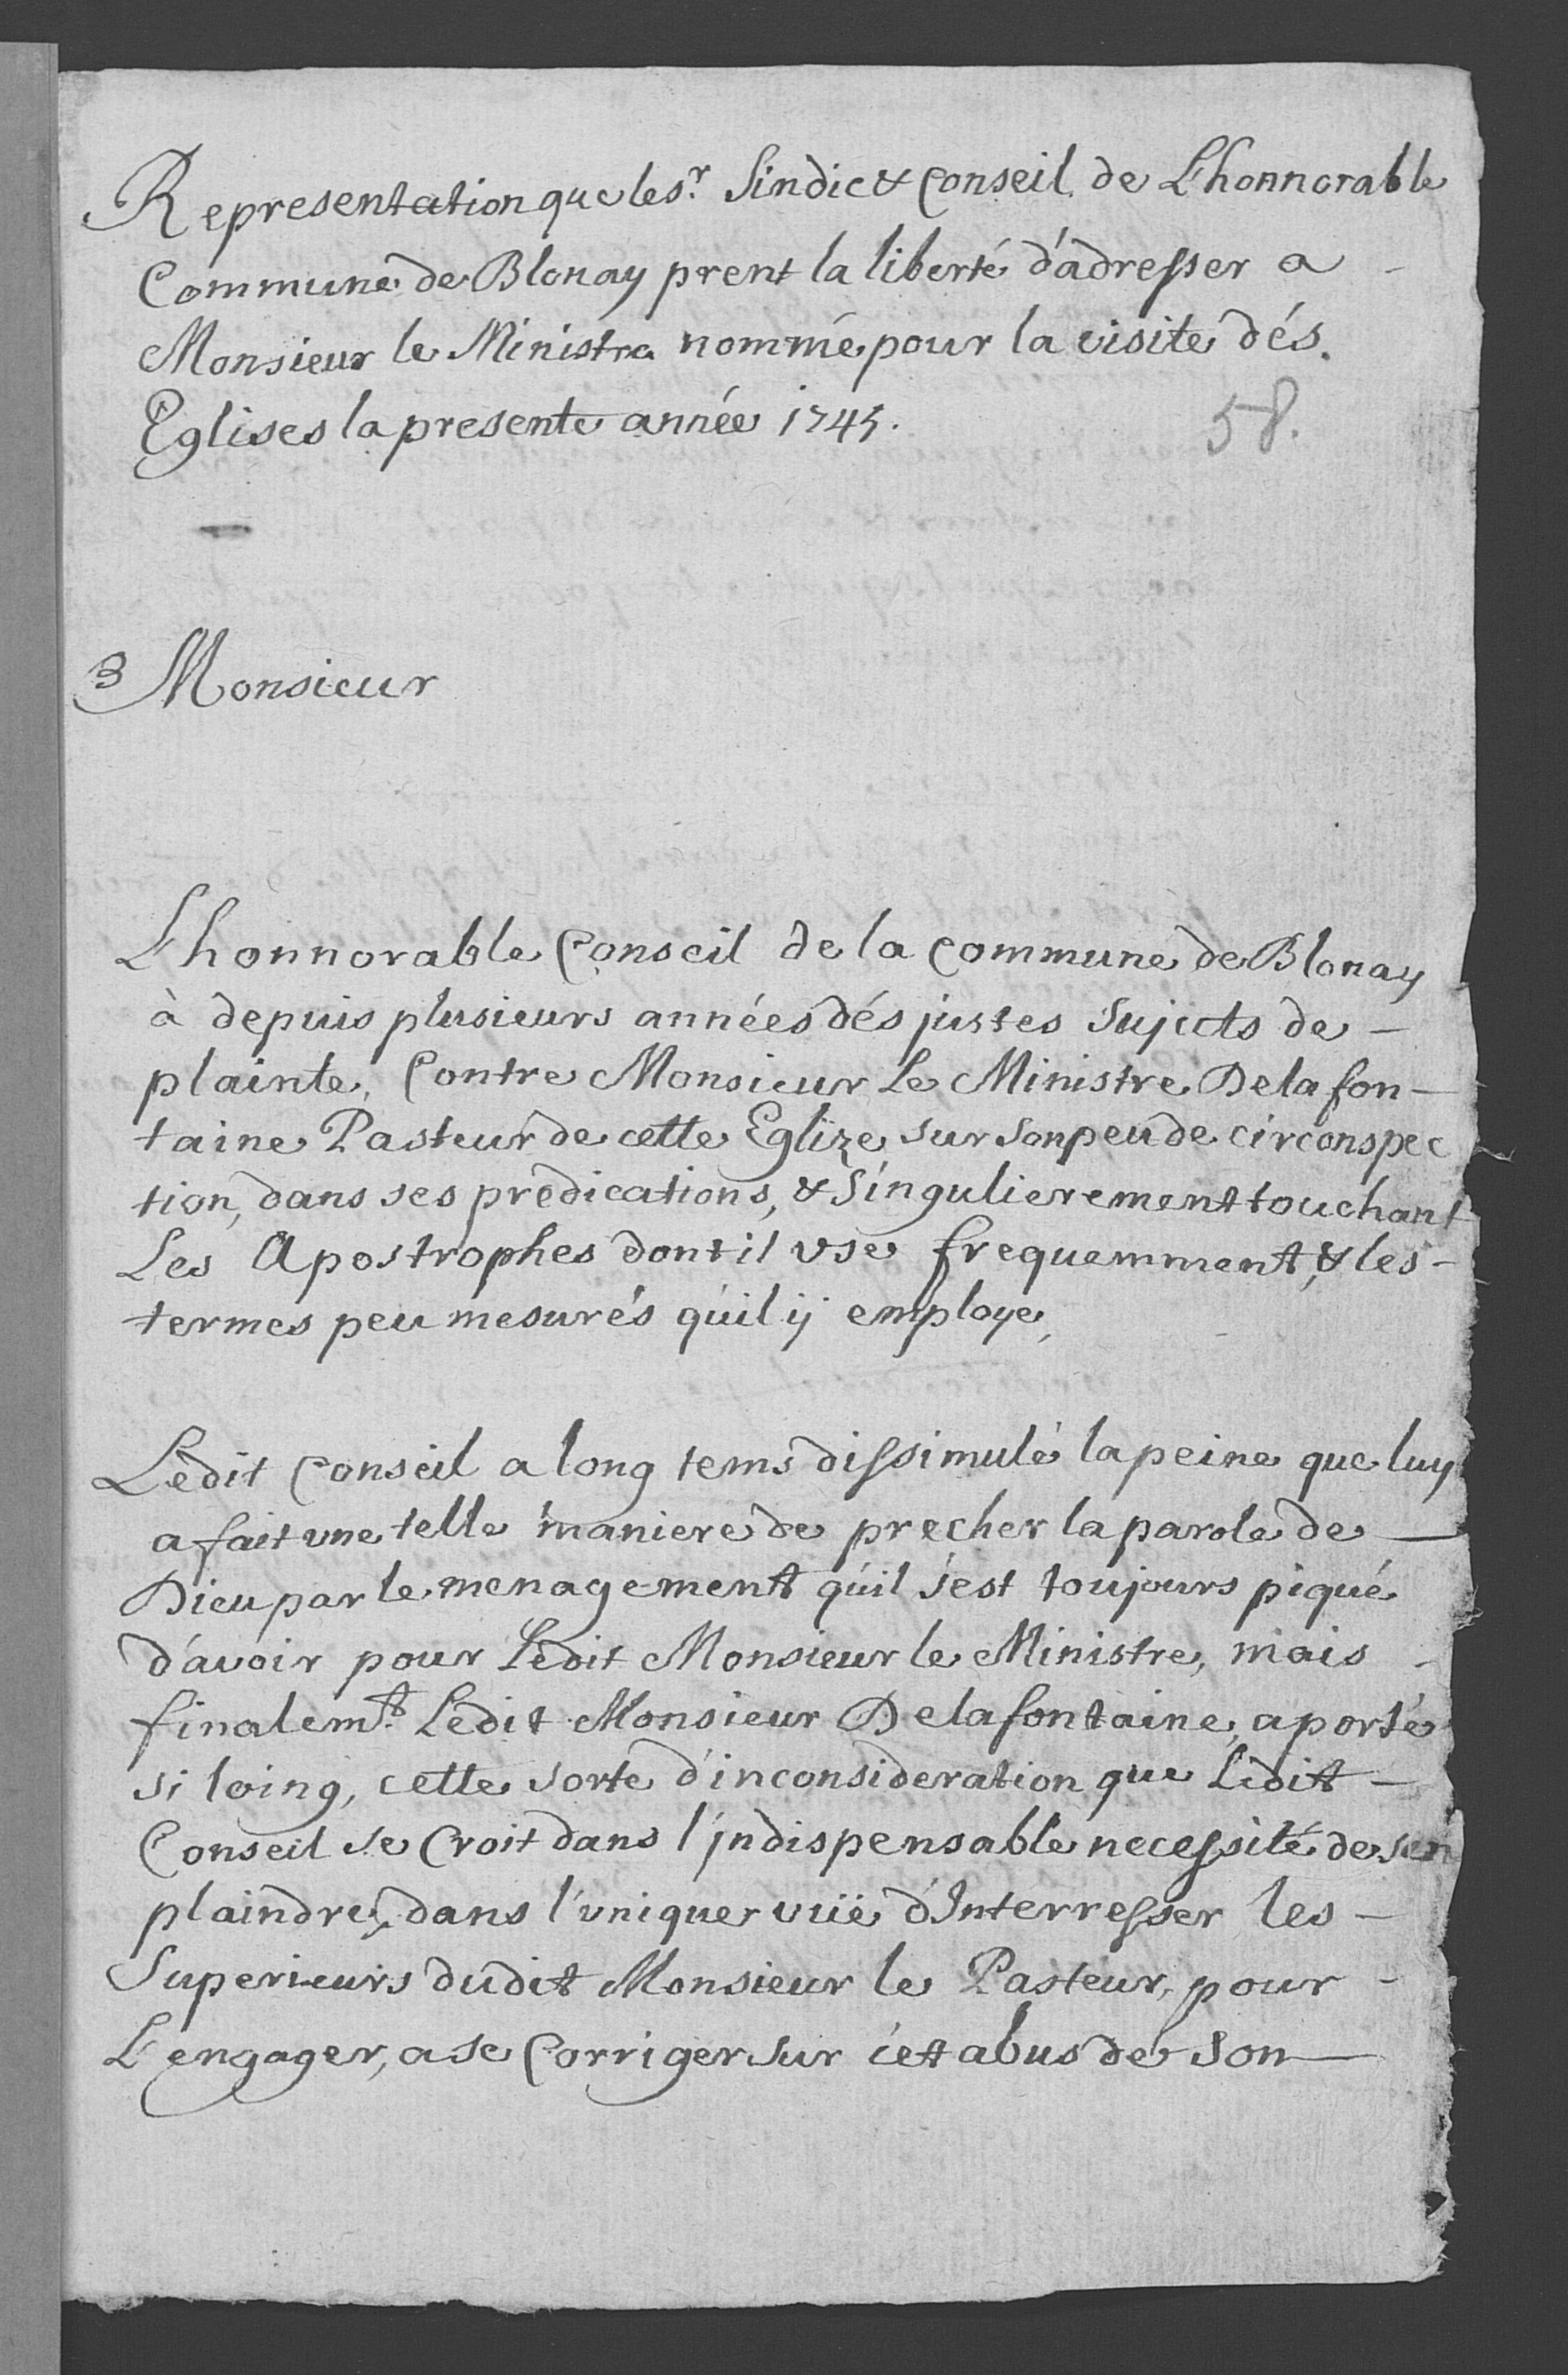 Representation que le s.r Sindic & Conseil de L'honnorable
Commune de Blonay prent la liberté d'adresser a -
Monsieur le Ministre nommé pour la visite dés
Eglises la presente année 1745.
58.
Monsieur
L'honnorable Conseil de la Commune de Blonay
à depuis plusieurs années dés justes Sujects de -
plainte, Contre Monsieur Le Ministre Delafon-
taine Pasteur de cette Eglize sur son peu de circonspec
tion, dans ses predications, & Singulierement touchant
Les Apostrophes dont il use frequemment, & les -
termes peu mesurés qu'il ÿ employe,
Ledit Conseil a long tems dissimulé la peine que luy
a fait une telle maniere de precher la parole de —
Dieu par le menagement qu'il s'est toujours piqué
d'avoir pour Ledit Monsieur le Ministre, mais -
finalem.t Ledit Monsieur Delafontaine, a porté
si loing, cette sorte d'inconsideration que Ledit -
Conseil se Croit dans l'jndispensable necessité de sen
plaindre, dans l'unique vüe d'Interresser les -
Superieurs dudit Monsieur le Pasteur, pour -
L'engager, a se Corriger sur cet abus de son —